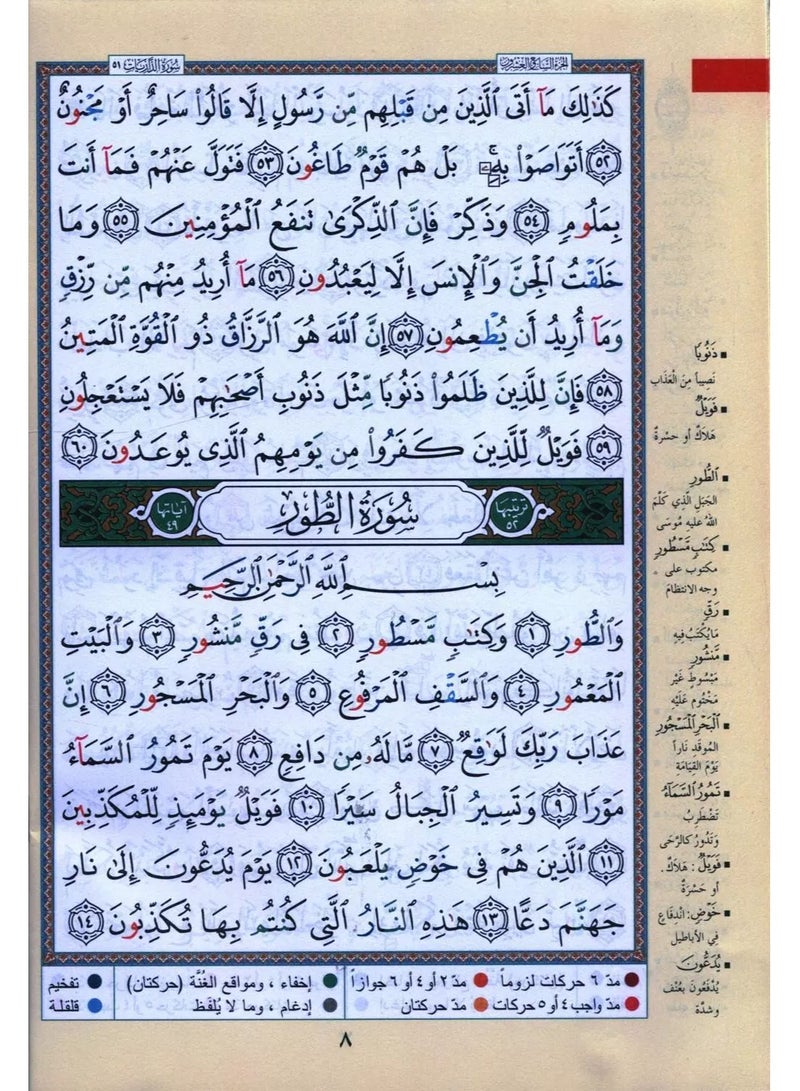 الجزء السابع والعشرون
سورة الذاريات ٥١
كَذَٰلِكَ مَآ أَتَى ٱلَّذِينَ مِن قَبْلِهِم مِّن رَّسُولٍ إِلَّا قَالُوا۟ سَاحِرٌ أَوْ مَجْنُونٌ
٥٢ أَتَوَاصَوْا۟ بِهِۦ ۚ بَلْ هُمْ قَوْمٌ طَاغُونَ ٥٣ فَتَوَلَّ عَنْهُمْ فَمَآ أَنتَ
بِمَلُومٍ ٥٤ وَذَكِّرْ فَإِنَّ ٱلذِّكْرَىٰ تَنفَعُ ٱلْمُؤْمِنِينَ ٥٥ وَمَا
خَلَقْتُ ٱلْجِنَّ وَٱلْإِنسَ إِلَّا لِيَعْبُدُونِ ٥٦ مَآ أُرِيدُ مِنْهُم مِّن رِّزْقٍ
وَمَآ أُرِيدُ أَن يُطْعِمُونِ ٥٧ إِنَّ ٱللَّهَ هُوَ ٱلرَّزَّاقُ ذُو ٱلْقُوَّةِ ٱلْمَتِينُ
٥٨ فَإِنَّ لِلَّذِينَ ظَلَمُوا۟ ذَنُوبًا مِّثْلَ ذَنُوبِ أَصْحَٰبِهِمْ فَلَا يَسْتَعْجِلُونِ
٥٩ فَوَيْلٌ لِّلَّذِينَ كَفَرُوا۟ مِن يَوْمِهِمُ ٱلَّذِى يُوعَدُونَ ٦٠
ترتيبها ٥٢ سُورَةُ الطُّورِ آياتها ٤٩
بِسْمِ ٱللَّهِ ٱلرَّحْمَٰنِ ٱلرَّحِيمِ
وَٱلطُّورِ ١ وَكِتَٰبٍ مَّسْطُورٍ ٢ فِى رَقٍّ مَّنشُورٍ ٣ وَٱلْبَيْتِ
ٱلْمَعْمُورِ ٤ وَٱلسَّقْفِ ٱلْمَرْفُوعِ ٥ وَٱلْبَحْرِ ٱلْمَسْجُورِ ٦ إِنَّ
عَذَابَ رَبِّكَ لَوَٰقِعٌ ٧ مَّا لَهُۥ مِن دَافِعٍ ٨ يَوْمَ تَمُورُ ٱلسَّمَآءُ
مَوْرًا ٩ وَتَسِيرُ ٱلْجِبَالُ سَيْرًا ١٠ فَوَيْلٌ يَوْمَئِذٍ لِّلْمُكَذِّبِينَ
١١ ٱلَّذِينَ هُمْ فِى خَوْضٍ يَلْعَبُونَ ١٢ يَوْمَ يُدَعُّونَ إِلَىٰ نَارِ
جَهَنَّمَ دَعًّا ١٣ هَٰذِهِ ٱلنَّارُ ٱلَّتِى كُنتُم بِهَا تُكَذِّبُونَ ١٤
ذَنُوبًا
نصيباً من العَذَاب
فَوَيْلٌ
هَلاكٌ أو حَسْرةٌ
ٱلطُّورِ
الجَبَلِ الَّذي كَلَّمَ
اللهُ عليه مُوسَى
كِتَٰبٍ مَّسْطُورٍ
مكتوب على
وجه الانتظام
رَقٍّ
مَا يُكْتَبُ فِيهِ
مَّنشُورٍ
مَبْسُوطٍ غَيْرَ
مَخْتُومٍ عَلَيْهِ
ٱلْبَحْرِ ٱلْمَسْجُورِ
المُوقَدِ ناراً
يَوْمَ القِيَامَةِ
تَمُورُ ٱلسَّمَآءُ
تَضْطَرِبُ
وتَدُورُ كالرَّحَى
فَوَيْلٌ : هَلاكٌ.
أو حَسْرَةٌ
خَوْضٍ: انْدفَاعٍ
في الأباطيل
يُدَعُّونَ
يُدْفَعُونَ بعُنْفٍ
وشدَّة
مدّ ٦ حركات لزوماً مدّ ٢ أو ٤ أو ٦ جوازاً إخفاء ، ومواقع الغُنَّة (حركتان) تفخيم
مدّ واجب ٤ أو ٥ حركات مدّ حركتان إدغام ، وما لا يُلفَظ قلقلة
٨